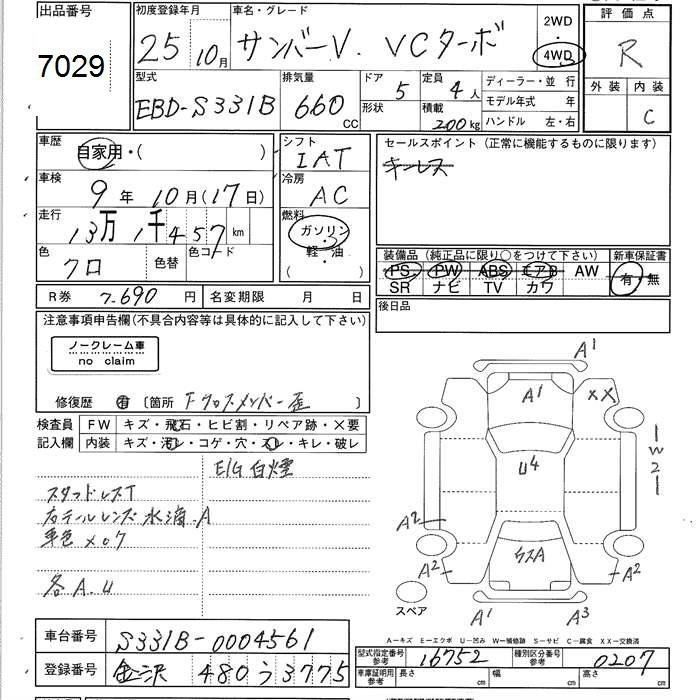 出品番号
7029
初度登録年月
25 10月
車名・グレード
サンバーV. VCターボ
2WD
・
4WD
評価点
R
型式
EBD-S331B
排気量
660 CC
ドア 5
形状
定員 4人
積載 200kg
ディーラー・並行
モデル年式 年
ハンドル 左・右
外装 内装
C
車歴
自家用・( )
車検
9年 10月(17日)
走行
13万 1千 4 5 7 km
色 クロ
色替
色コード
シフト
IAT
冷房
AC
燃料
ガソリン
・
軽油
( )
セールスポイント(正常に機能するものに限ります)
キーレス
装備品(純正品に限り○をつけて下さい)
新車保証書
PS PW ABS エアB AW
有・無
SR ナビ TV カワ
R券 7.690 円
名変期限 月 日
後日品
注意事項申告欄(不具合内容等は具体的に記入して下さい)
ノークレーム車
no claim
修復歴 有 〔箇所 Fクロスメンバー歪 〕
検査員 FW キズ・飛石・ヒビ割・リペア跡・×要
記入欄 内装 キズ・汚レ・コゲ・穴・スレ・キレ・破レ
E/G白煙
スタッドレスT
右テールレンズ水滴.A
各A.U
A1
A1
XX
W2
U4
A2
A2
A2
A1
A3
スペア
A-キズ E-エクボ U-凹み W-補修跡 S-サビ C-腐食 XX-交換済
車台番号 S331B-0004561
登録番号 金沢 480 う 3775
型式指定番号 参考 16752
種別区分番号 参考 0207
車庫証明用 参考 長さ cm 幅 cm 高さ cm